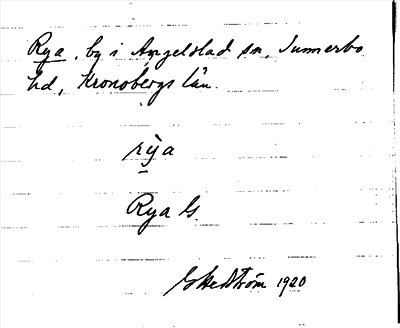 Rya, by i Angelstad sn, Sunnerbo
hd, Kronobergs län.
rya
Rya G.
G Hedström 1920